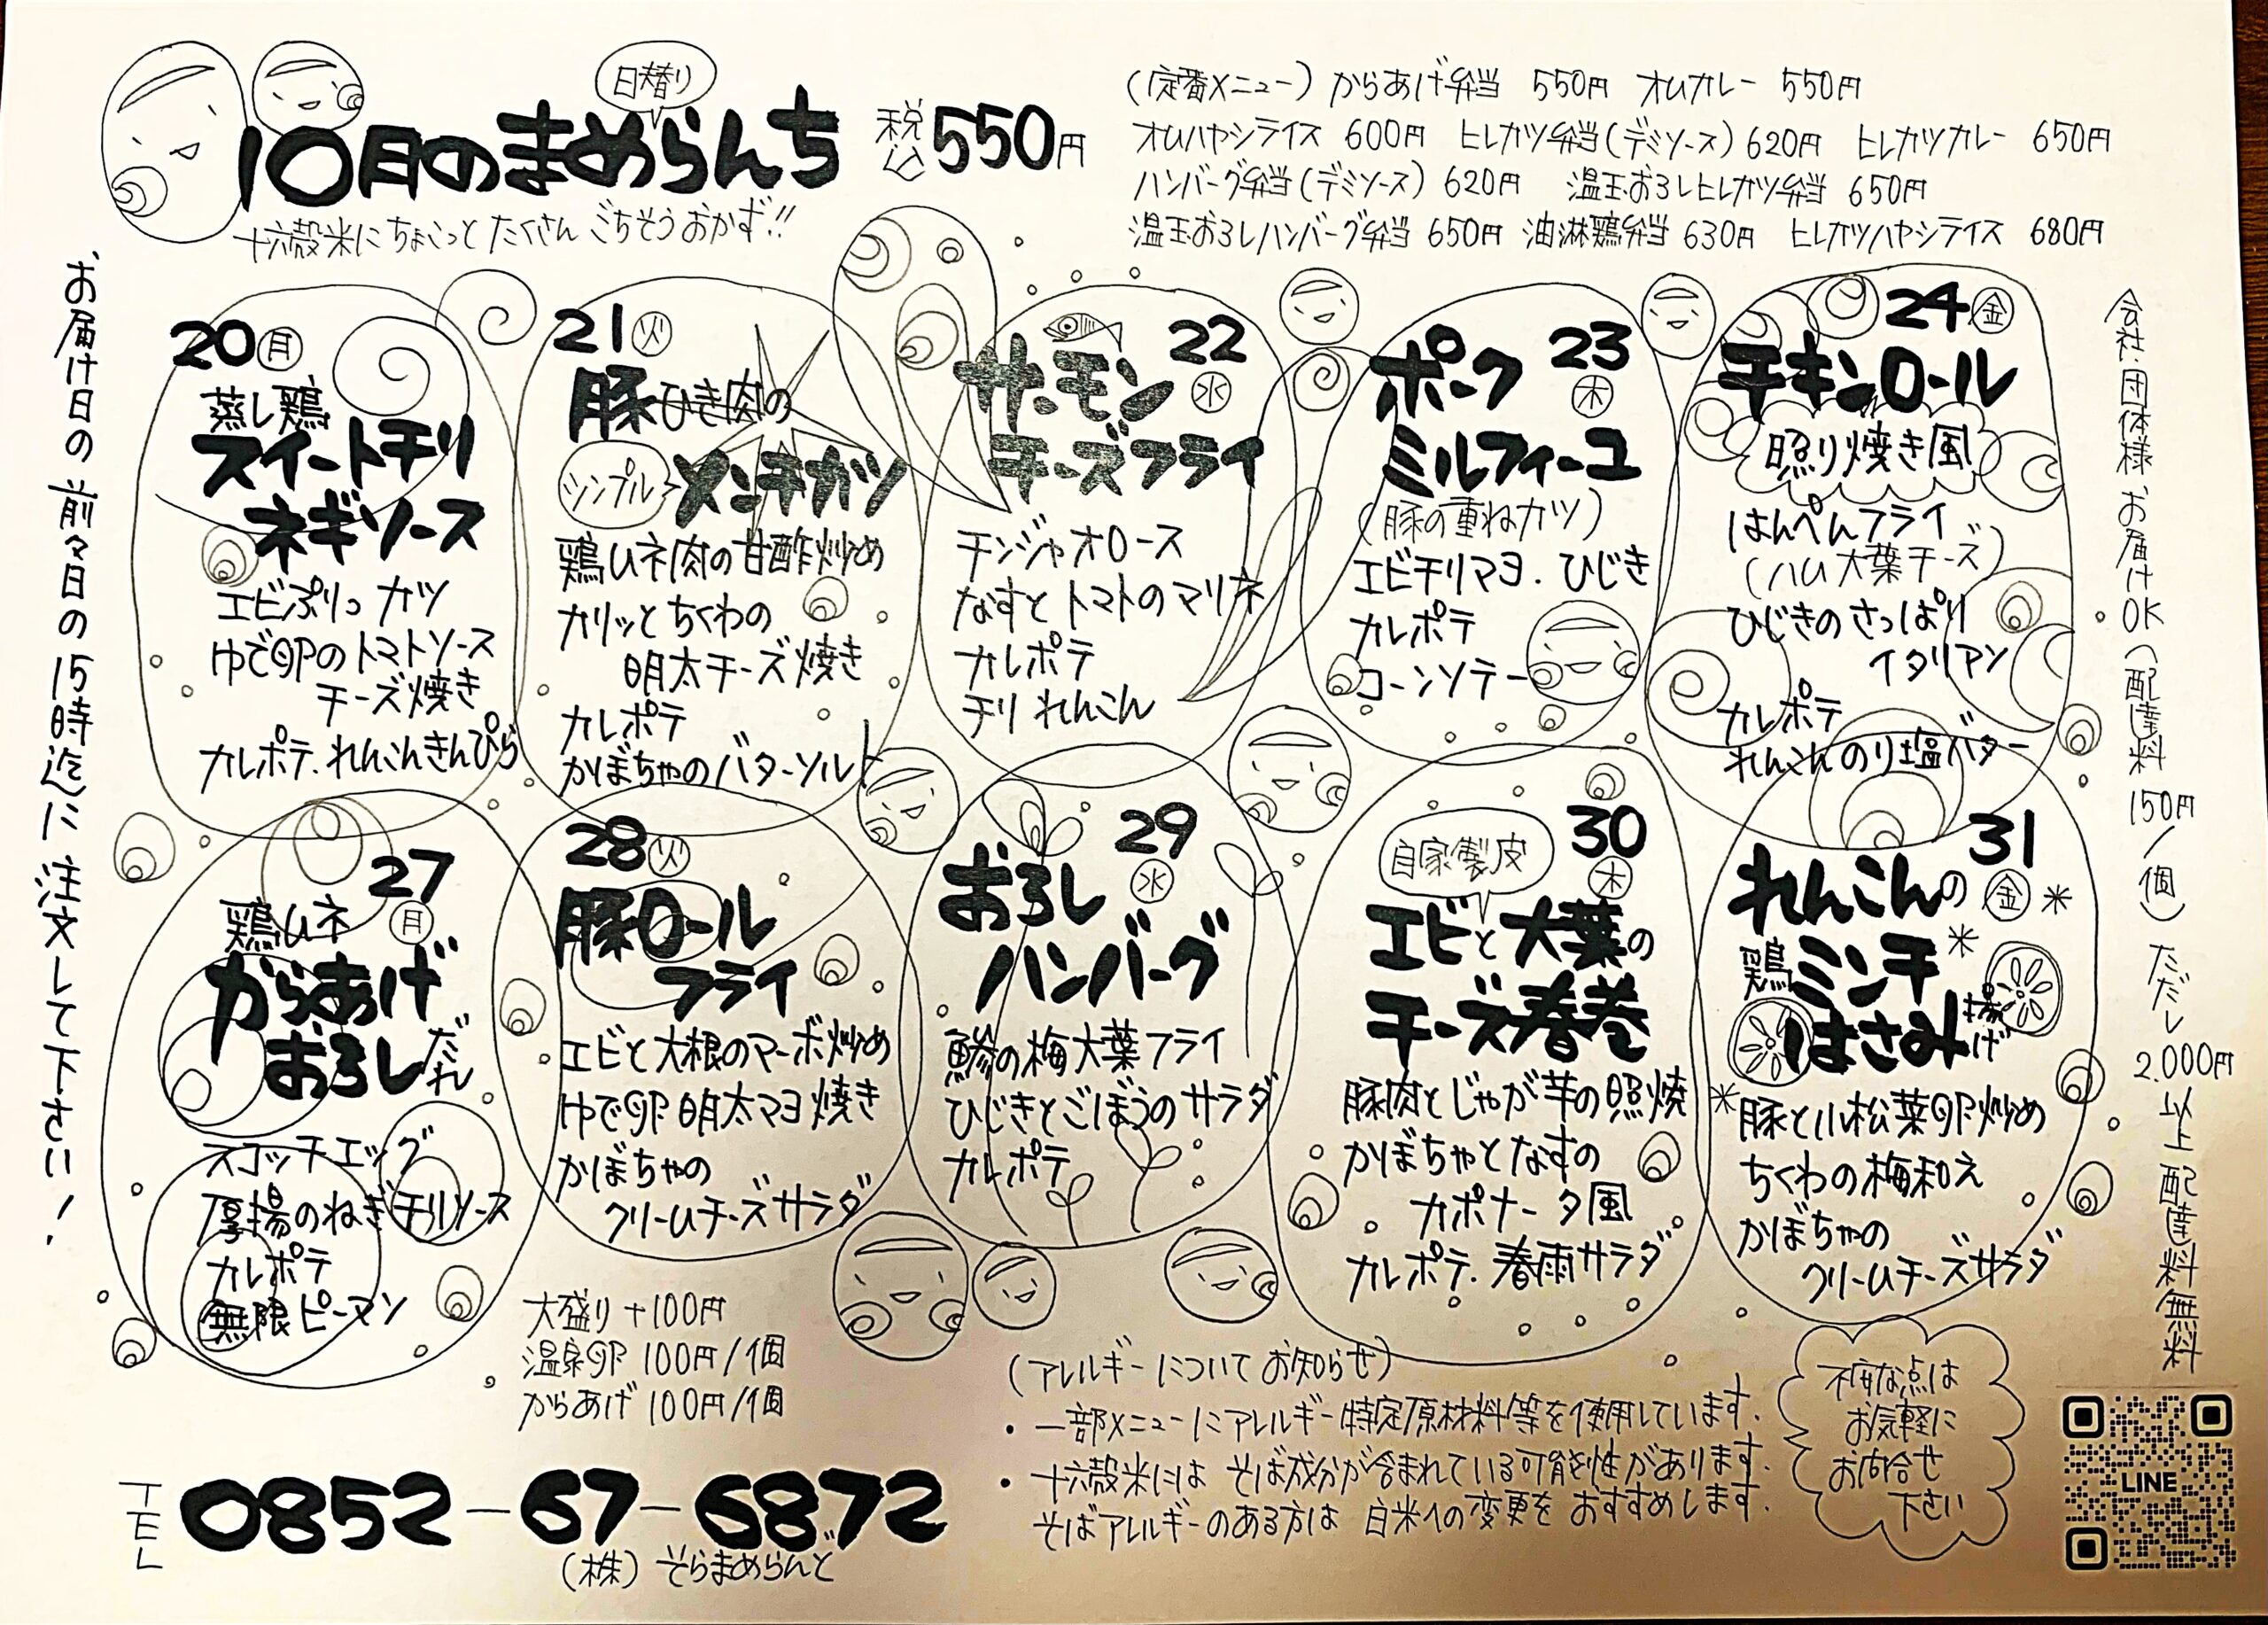 日替り
10月のまめらんち 税込550円
十六穀米にちょこっと たくさん ごちそうおかず!!
(定番メニュー) からあげ弁当 550円 オムカレー 550円
オムハヤシライス 600円 ヒレカツ弁当(デミソース) 620円 ヒレカツカレー 650円
ハンバーグ弁当(デミソース) 620円 温玉おろしヒレカツ弁当 650円
温玉おろしハンバーグ弁当 650円 油淋鶏弁当 630円 ヒレカツハヤシライス 680円
お届け日の前々日の15時迄に注文して下さい!
20 月
蒸し鶏
スイートチリ
ネギソース
エビぷりっカツ
ゆで卵のトマトソース
チーズ焼き
カレポテ.れんこんきんぴら
21 火
豚ひき肉の
シンプル メンチカツ
鶏ムネ肉の甘酢炒め
カリッとちくわの
明太チーズ焼き
カレポテ
かぼちゃのバターソルト
22 水
サーモン
チーズフライ
チンジャオロース
なすとトマトのマリネ
カレポテ
チリれんこん
23 木
ポーク
ミルフィーユ
(豚の重ねカツ)
エビチリマヨ.ひじき
カレポテ
コーンソテー
24 金
チキンロール
照り焼き風
はんぺんフライ
(ハム大葉チーズ)
ひじきのさっぱり
イタリアン
カレポテ
れんこんのり塩バター
27 月
鶏ムネ
からあげ
おろしだれ
スコッチエッグ
厚揚のねぎチリソース
カレポテ
無限ピーマン
28 火
豚ロール
フライ
エビと大根のマーボ炒め
ゆで卵明太マヨ焼き
かぼちゃの
クリームチーズサラダ
29 水
おろし
ハンバーグ
鯵の梅大葉フライ
ひじきとごぼうのサラダ
カレポテ
30 木
自家製皮
エビと大葉の
チーズ春巻
豚肉とじゃが芋の照焼
かぼちゃとなすの
カポナータ風
カレポテ.春雨サラダ
31 金
れんこんの
鶏ミンチ
はさみ揚げ
豚と小松菜卵炒め
ちくわの梅和え
かぼちゃの
クリームチーズサラダ
会社・団体様お届けOK(配達料150円/個)ただし2.000円以上配達料無料
大盛り +100円
温泉卵 100円/1個
からあげ 100円/1個
TEL 0852-67-6872
(株) そらまめらんど
(アレルギーについてお知らせ)
・一部メニューにアレルギー特定原材料等を使用しています.
・十六穀米には そば成分が含まれている可能性があります.
そばアレルギーのある方は 白米への変更を おすすめします.
不明な点は
お気軽に
お問合せ
下さい
LINE